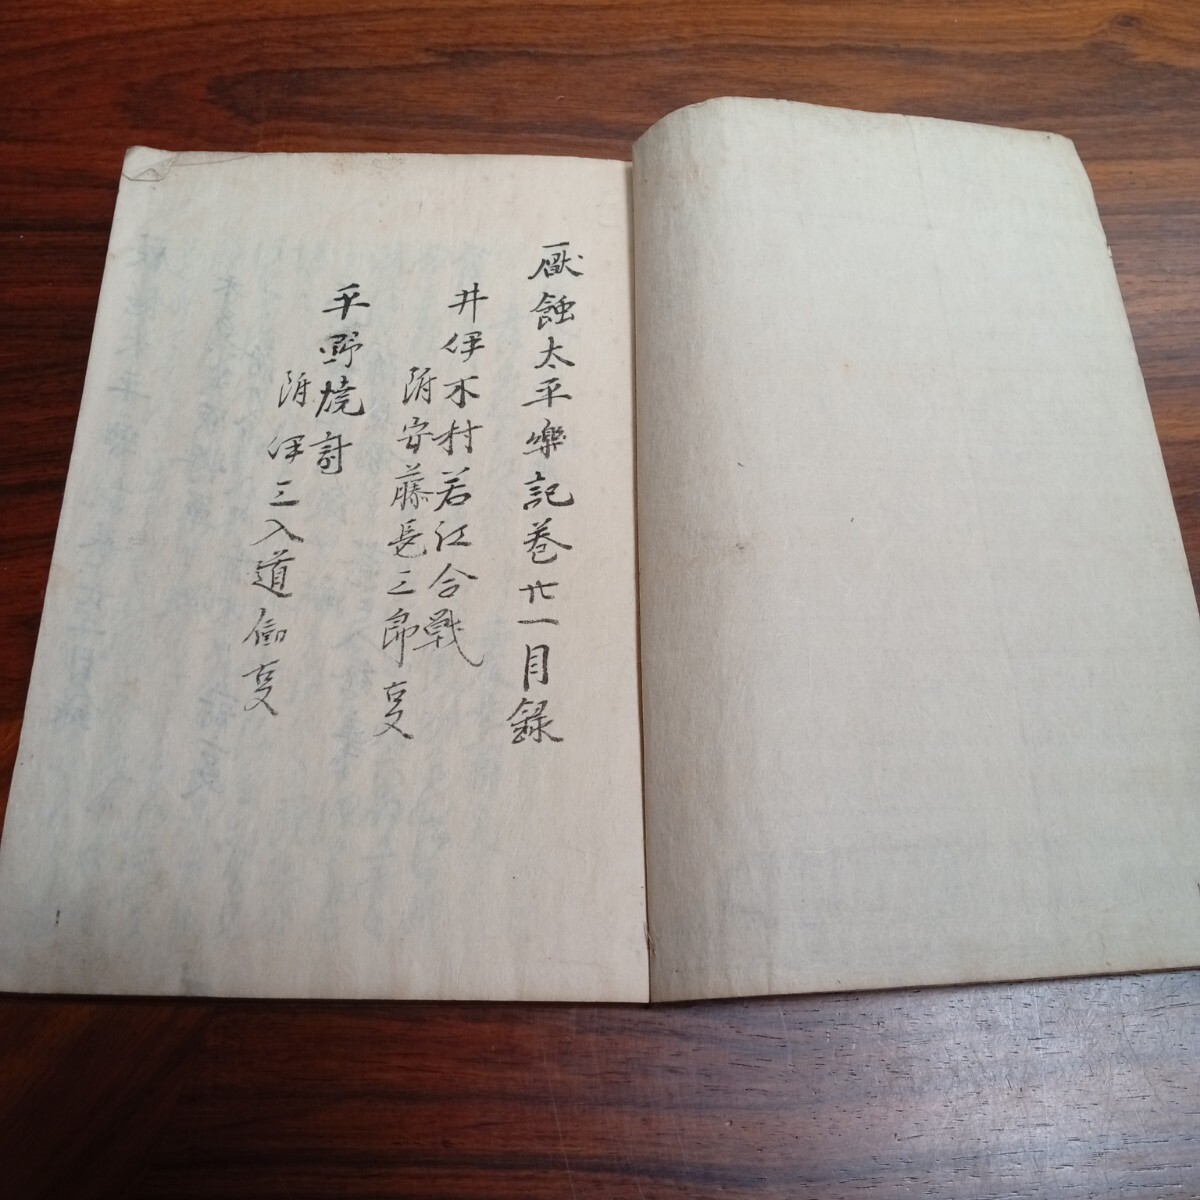 厭蝕太平樂記巻廿一目録
井伊木村若江合戰
附安藤長三郎叓
平野焼討
附伊三入道叓